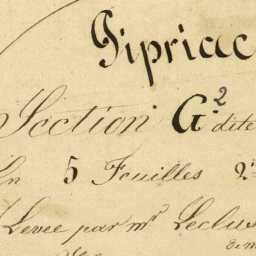 Pipriac
Section G.2 dite
En 5 Feuilles 2.
Levée par mr Leclus